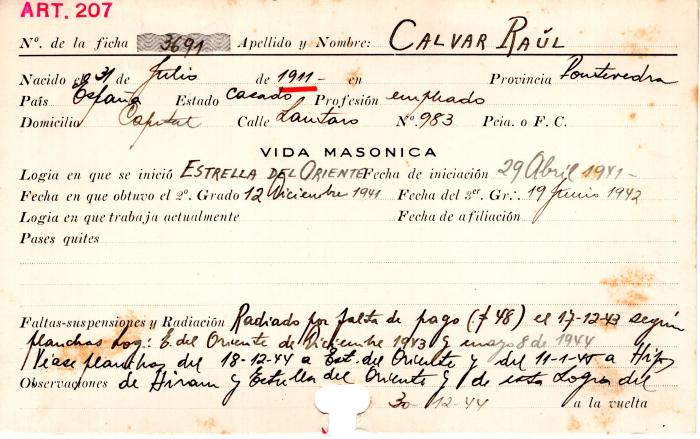 ART. 207
Nº. de la ficha 3691 Apellido y Nombre: CALVAR RAÚL
Nacido el 31 de Julio de 1911- en Provincia Pontevedra
País España Estado casado Profesión empleado
Domicilio Capital Calle Lautaro Nº. 983 Pcia. o F. C.
VIDA MASONICA
Logia en que se inició ESTRELLA DEL ORIENTE Fecha de iniciación 29 Abril 1941-
Fecha en que obtuvo el 2º. Grado 12 Diciembre 1941 Fecha del 3er Gr∴ 19 Junio 1942
Logia en que trabaja actualmente Fecha de afiliación
Pases quites
Faltas-suspensiones y Radiación Radiado por falta de pago (f 48) el 17-12-43 según
planchas Log: E. del Oriente de Diciembre 1943 y mayo 8 de 1944
Véase planchas del 18-12-44 a Est. del Oriente y del 11-1-45 a Hijos
Observaciones de Hiram y Estrella del Oriente y de esta Logia del
30-12-44 a la vuelta